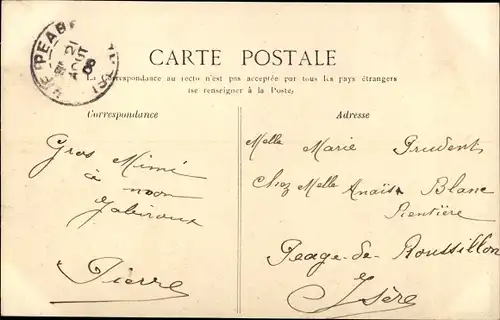 PEAGE
21
AOUT
08
ISERE
CARTE POSTALE
La Correspondance au recto n'est pas acceptée par tous les pays étrangers
(se renseigner à la Poste)
Correspondance
Gros Mimi
à
Pierre
Adresse
Melle Marie Prudent
Chez Melle Anaïs Blanc
Rentière
Peage-de-Roussillon
Isère